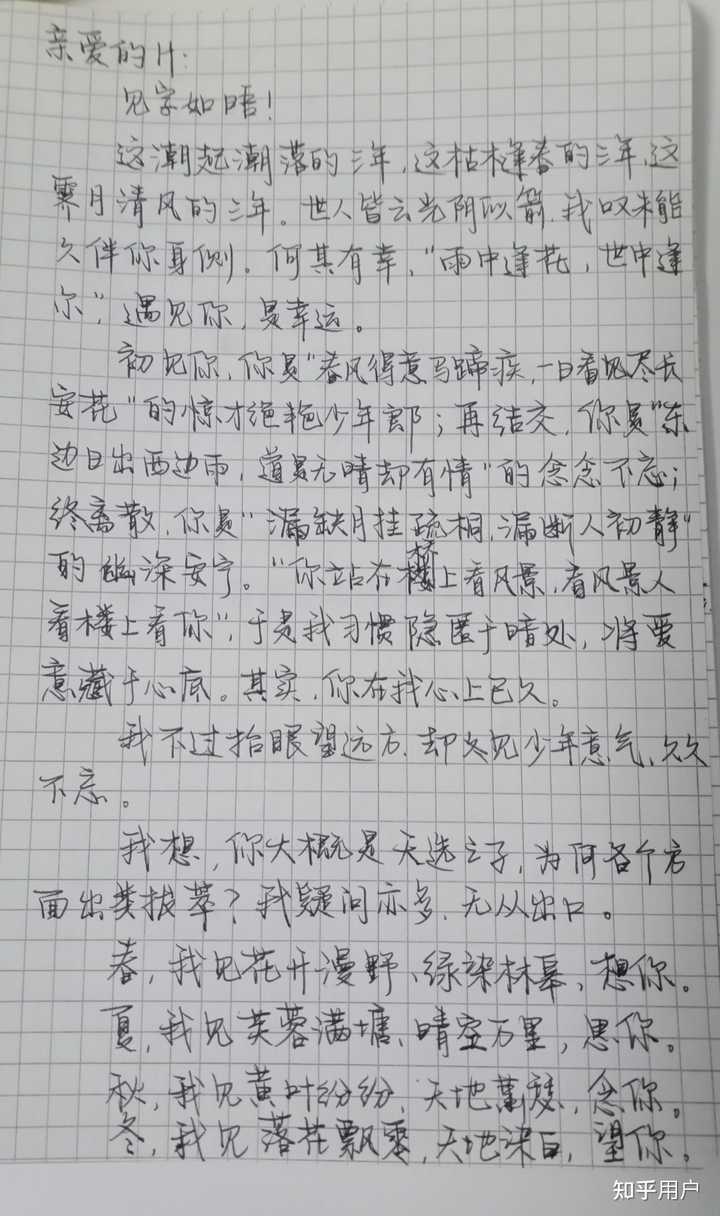 亲爱的H:
见字如晤!
这潮起潮落的三年,这枯木逢春的三年,这
霁月清风的三年。世人皆云光阴似箭,我叹未能
久伴你身侧。何其有幸,“雨中逢花,世中逢
尔”,遇见你,是幸运。
初见你,你是“春风得意马蹄疾,一日看见尽长
安花”的惊才绝艳少年郎;再结交,你是“东
边日出西边雨,道是无晴却有情”的念念不忘;
终离散,你是“漏缺月挂疏桐,漏断人初静”
的幽深安宁。“你站在桥上看风景,看风景人
看楼上看你”,于是我习惯隐匿于暗处,将爱
意藏于心底。其实,你在我心上已久。
我不过抬眼望远方,却又见少年意气,久久
不忘。
我想,你大概是天选之子,为何各个方
面出类拔萃?我疑问亦多,无从出口。
春,我见花开漫野、绿染林皋,想你。
夏,我见芙蓉满塘、晴空万里,思你。
秋,我见黄叶纷纷,天地萧瑟,念你。
冬,我见落花飘零,天地染白,望你。
知乎用户